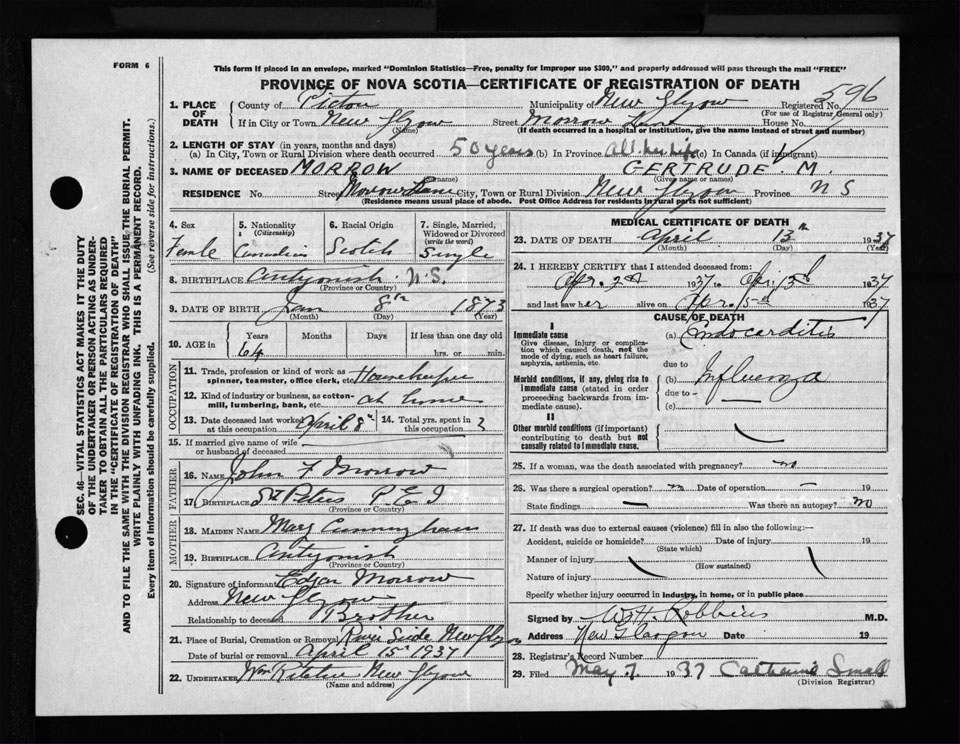 FORM 6
This form if placed in an envelope, marked "Dominion Statistics—Free, penalty for improper use $300," and properly addressed will pass through the mail "FREE"
PROVINCE OF NOVA SCOTIA—CERTIFICATE OF REGISTRATION OF DEATH
1. PLACE OF DEATH County of Pictou Municipality of New Glasgow Registered No. 596
(For use of Registrar General only)
If in City or Town New Glasgow Street Morrow Lane House No.
(Name) (If death occurred in a hospital or institution, give the name instead of street and number)
2. LENGTH OF STAY (in years, months and days)
(a) In City, Town or Rural Division where death occurred 50 years (b) In Province all her life (c) In Canada (if immigrant)
3. NAME OF DECEASED MORROW GERTRUDE. M.
(Given name or names)
RESIDENCE No. Street Morrow Lane City, Town or Rural Division New Glasgow Province N S
(Residence means usual place of abode. Post Office Address for residents in rural parts not sufficient)
4. Sex 5. Nationality (Citizenship) 6. Racial Origin 7. Single, Married, Widowed or Divorced (write the word)
Female Canadian Scotch Single
8. BIRTHPLACE Antigonish N.S.
(Province or Country)
9. DATE OF BIRTH Jan 8th 1873
(Month) (Day) (Year)
10. AGE in Years Months Days If less than one day old
64 hrs. or min.
OCCUPATION
11. Trade, profession or kind of work as spinner, teamster, office clerk, etc. Housekeeper
12. Kind of industry or business, as cotton-mill, lumbering, bank, etc. at home
13. Date deceased last worked at this occupation April 8th 14. Total yrs. spent in this occupation
15. If married give name of wife or husband of deceased
FATHER
16. NAME John F Morrow
17. BIRTHPLACE St Peters P E I
(Province or Country)
MOTHER
18. MAIDEN NAME Mary Cunningham
19. BIRTHPLACE Antigonish
(Province or Country)
20. Signature of informant Edgar Morrow
Address New Glasgow
Relationship to deceased Brother
21. Place of Burial, Cremation or Removal River Side New Glasgow
Date of burial or removal April 15th 1937
22. UNDERTAKER Wm New Glasgow
(Name and address)
MEDICAL CERTIFICATE OF DEATH
23. DATE OF DEATH April 13th 1937
(Month) (Day) (Year)
24. I HEREBY CERTIFY that I attended deceased from:
Apr. 1937 to Apr. 1937
and last saw her alive on Apr. 1937
CAUSE OF DEATH
I
Immediate cause (a) Endocarditis
Give disease, injury or complication which caused death, not the mode of dying, such as heart failure, asphyxia, asthenia, etc.
due to
Morbid conditions, if any, giving rise to immediate cause (stated in order proceeding backwards from immediate cause). (b) Influenza
due to
(c)
II
Other morbid conditions (if important) contributing to death but not causally related to immediate cause.
25. If a woman, was the death associated with pregnancy? no
26. Was there a surgical operation? no Date of operation — 19
State findings — Was there an autopsy? no
27. If death was due to external causes (violence) fill in also the following:—
Accident, suicide or homicide? Date of injury 19
(State which)
Manner of injury
(How sustained)
Nature of injury
Specify whether injury occurred in industry, in home, or in public place
Signed by W H Robbins M.D.
Address New Glasgow Date 19
28. Registrar's Record Number
29. Filed May 7 1937 Catharine Small
(Division Registrar)
SEC. 46—VITAL STATISTICS ACT MAKES IT THE DUTY
OF THE UNDERTAKER OR PERSON ACTING AS UNDER-
TAKER TO OBTAIN ALL THE PARTICULARS REQUIRED
IN THE "CERTIFICATE OF REGISTRATION OF DEATH"
AND TO FILE THE SAME WITH THE DIVISION REGISTRAR WHO SHALL ISSUE THE BURIAL PERMIT.
WRITE PLAINLY WITH UNFADING INK. THIS IS A PERMANENT RECORD.
Every item of information should be carefully supplied. (See reverse side for instructions.)